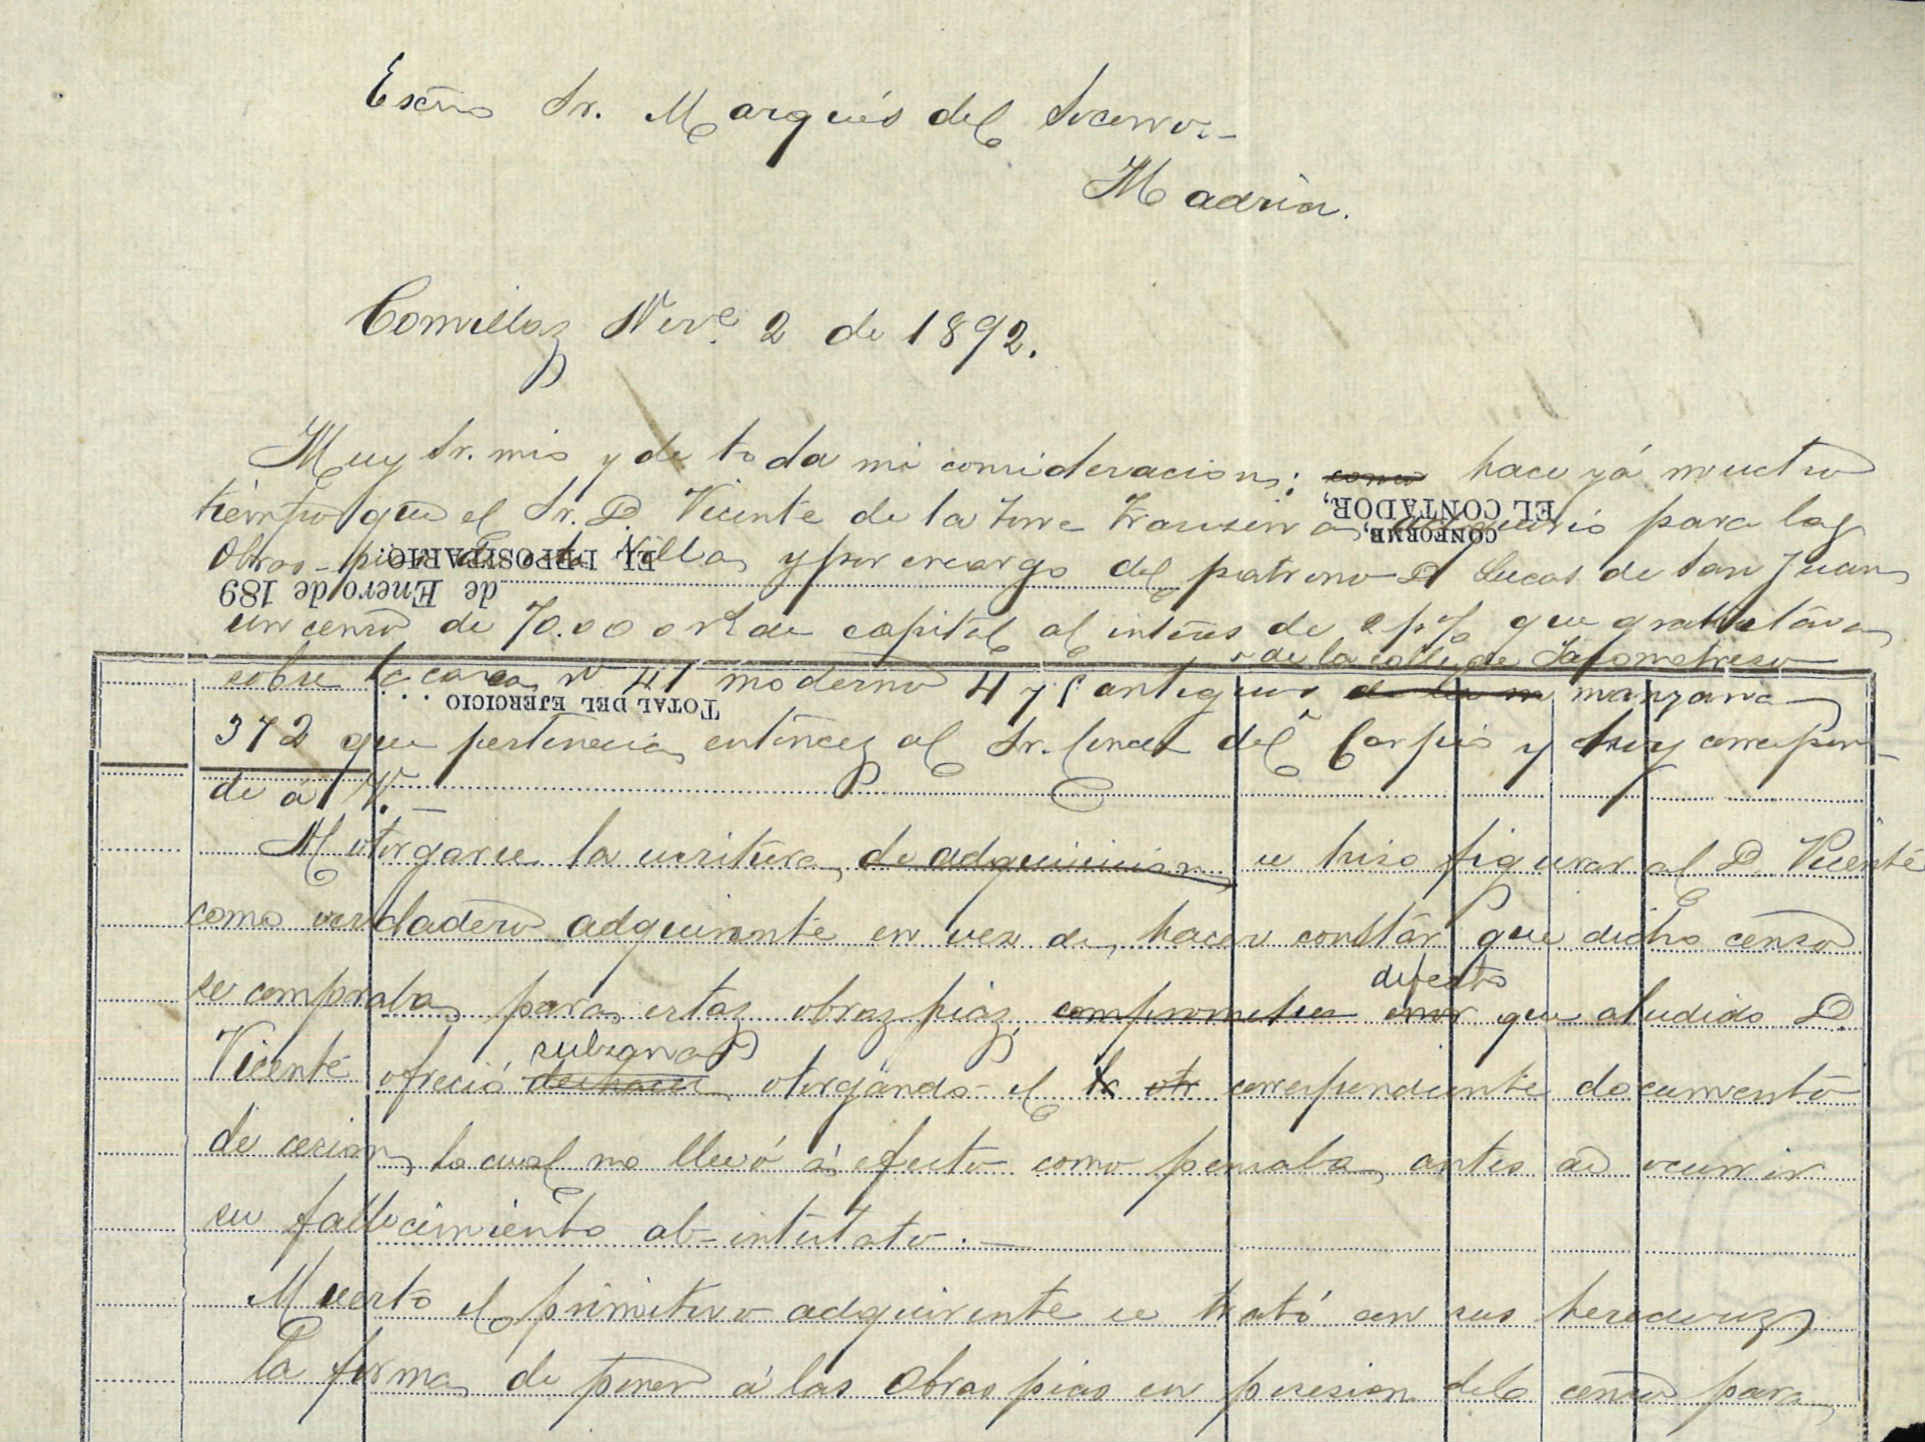 Escmo Sr. Marqués del Socorro.-
Madrid.
Comillas Nvre. 2 de 1892.
Muy Sr. mio y de toda mi consideracion: como hace yá mucho
EL CONTADOR,
tiempo que el Sr. D. Vicente de la Torre Trasierra adquirió para las
CONFORME,
Obras-pias de esta Villa, y por encargo del patrono D. Lucas de San Juan
EL DEPOSITARIO,
de Enero de 189
un censo de 70.000 rs. de capital al interes de 2 p% que gravitava
de la calle de Jacometrezo
sobre la casa nº 41 moderno 4 y 5 antiguos de la m manzana
TOTAL DEL EJERCICIO
372 que pertenecia entónces al Sr. Conde del Carpio y hoy correspon-
de á V.-
Al otorgarse la escritura de adquisicion se hiso figurar al D. Vicente
como verdadero adquirente en vez de hacer constár que dicho censo
se compraba para estas obras pias, comprometer
defecto
error que aludido D.
subsanar
Vicente ofreció deshacer otorgándo el la otr correspondiente documento
de cesion, lo cual no llevó á efecto como pensaba, antes de ocurrir
su fallecimiento ab-intestato.-
Muerto el primitivo adquirente se trató con sus herederos
la forma de poner á las Obras pias en posesion del censo para